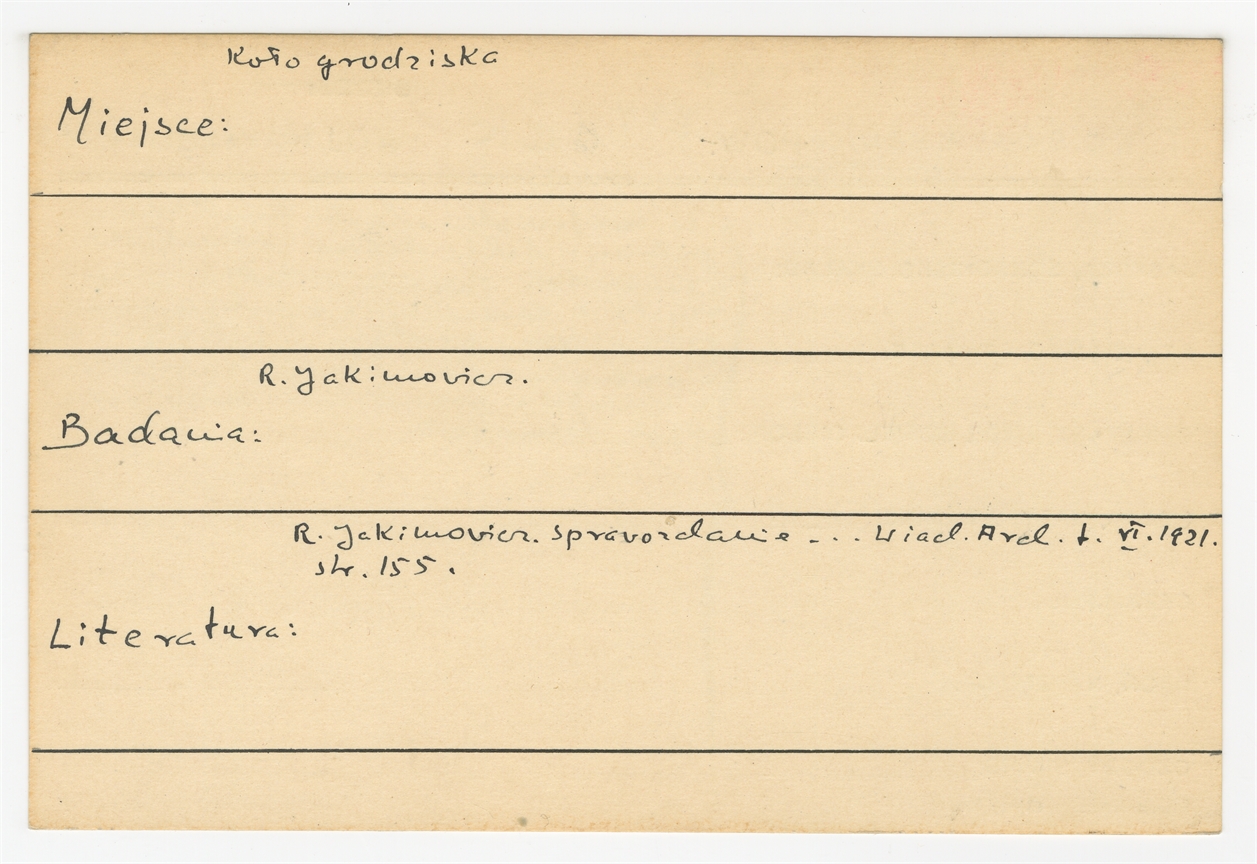 Koło grodziska
Miejsce:
R. Jakimowicz.
Badania:
R. Jakimowicz. Sprawozdanie ... Wiad. Arch. t. VI. 1921.
str. 155.
Literatura: